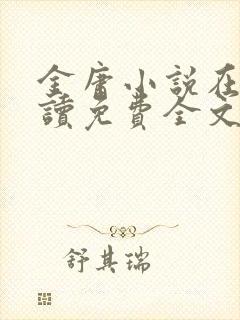 金庸小說在
讀免費全文
舒其瑞